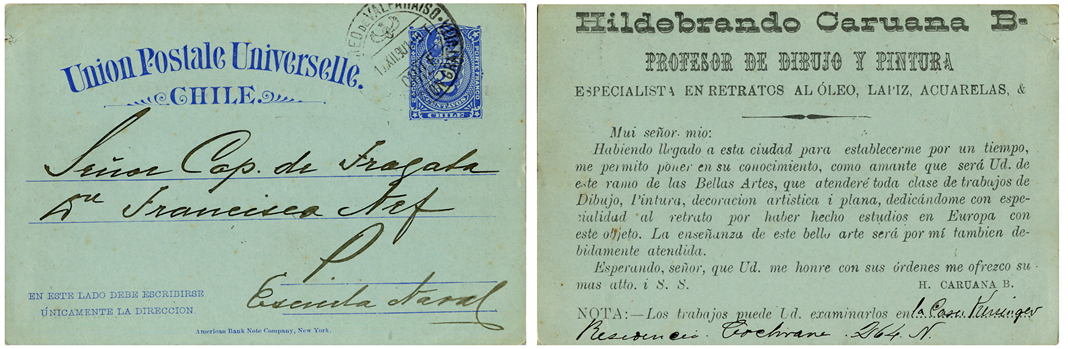 Union Postale Universelle.
CHILE.
VALPARAISO
CENTAVOS
CHILE
Señor Cap. de Fragata
Dn Francisco Nef
P.
Escuela Naval
EN ESTE LADO DEBE ESCRIBIRSE
ÚNICAMENTE LA DIRECCION.
American Bank Note Company, New York.
Hildebrando Caruana B-
PROFESOR DE DIBUJO Y PINTURA
ESPECIALISTA EN RETRATOS AL ÓLEO, LAPIZ, ACUARELAS, &
Mui señor mio:
Habiendo llegado a esta ciudad para establecerme por un tiempo,
me permito poner en su conocimiento, como amante que será Ud. de
este ramo de las Bellas Artes, que atenderé toda clase de trabajos de
Dibujo, Pintura, decoracion artistica i plana, dedicándome con espe-
cialidad al retrato por haber hecho estudios en Europa con
este objeto. La enseñanza de este bello arte será por mí tambien de-
bidamente atendida.
Esperando, señor, que Ud. me honre con sus órdenes me ofrezco su
mas atto. i S. S.
H. CARUANA B.
NOTA:—Los trabajos puede Ud. examinarlos en la Casa
Residencia Cochrane 264 N.